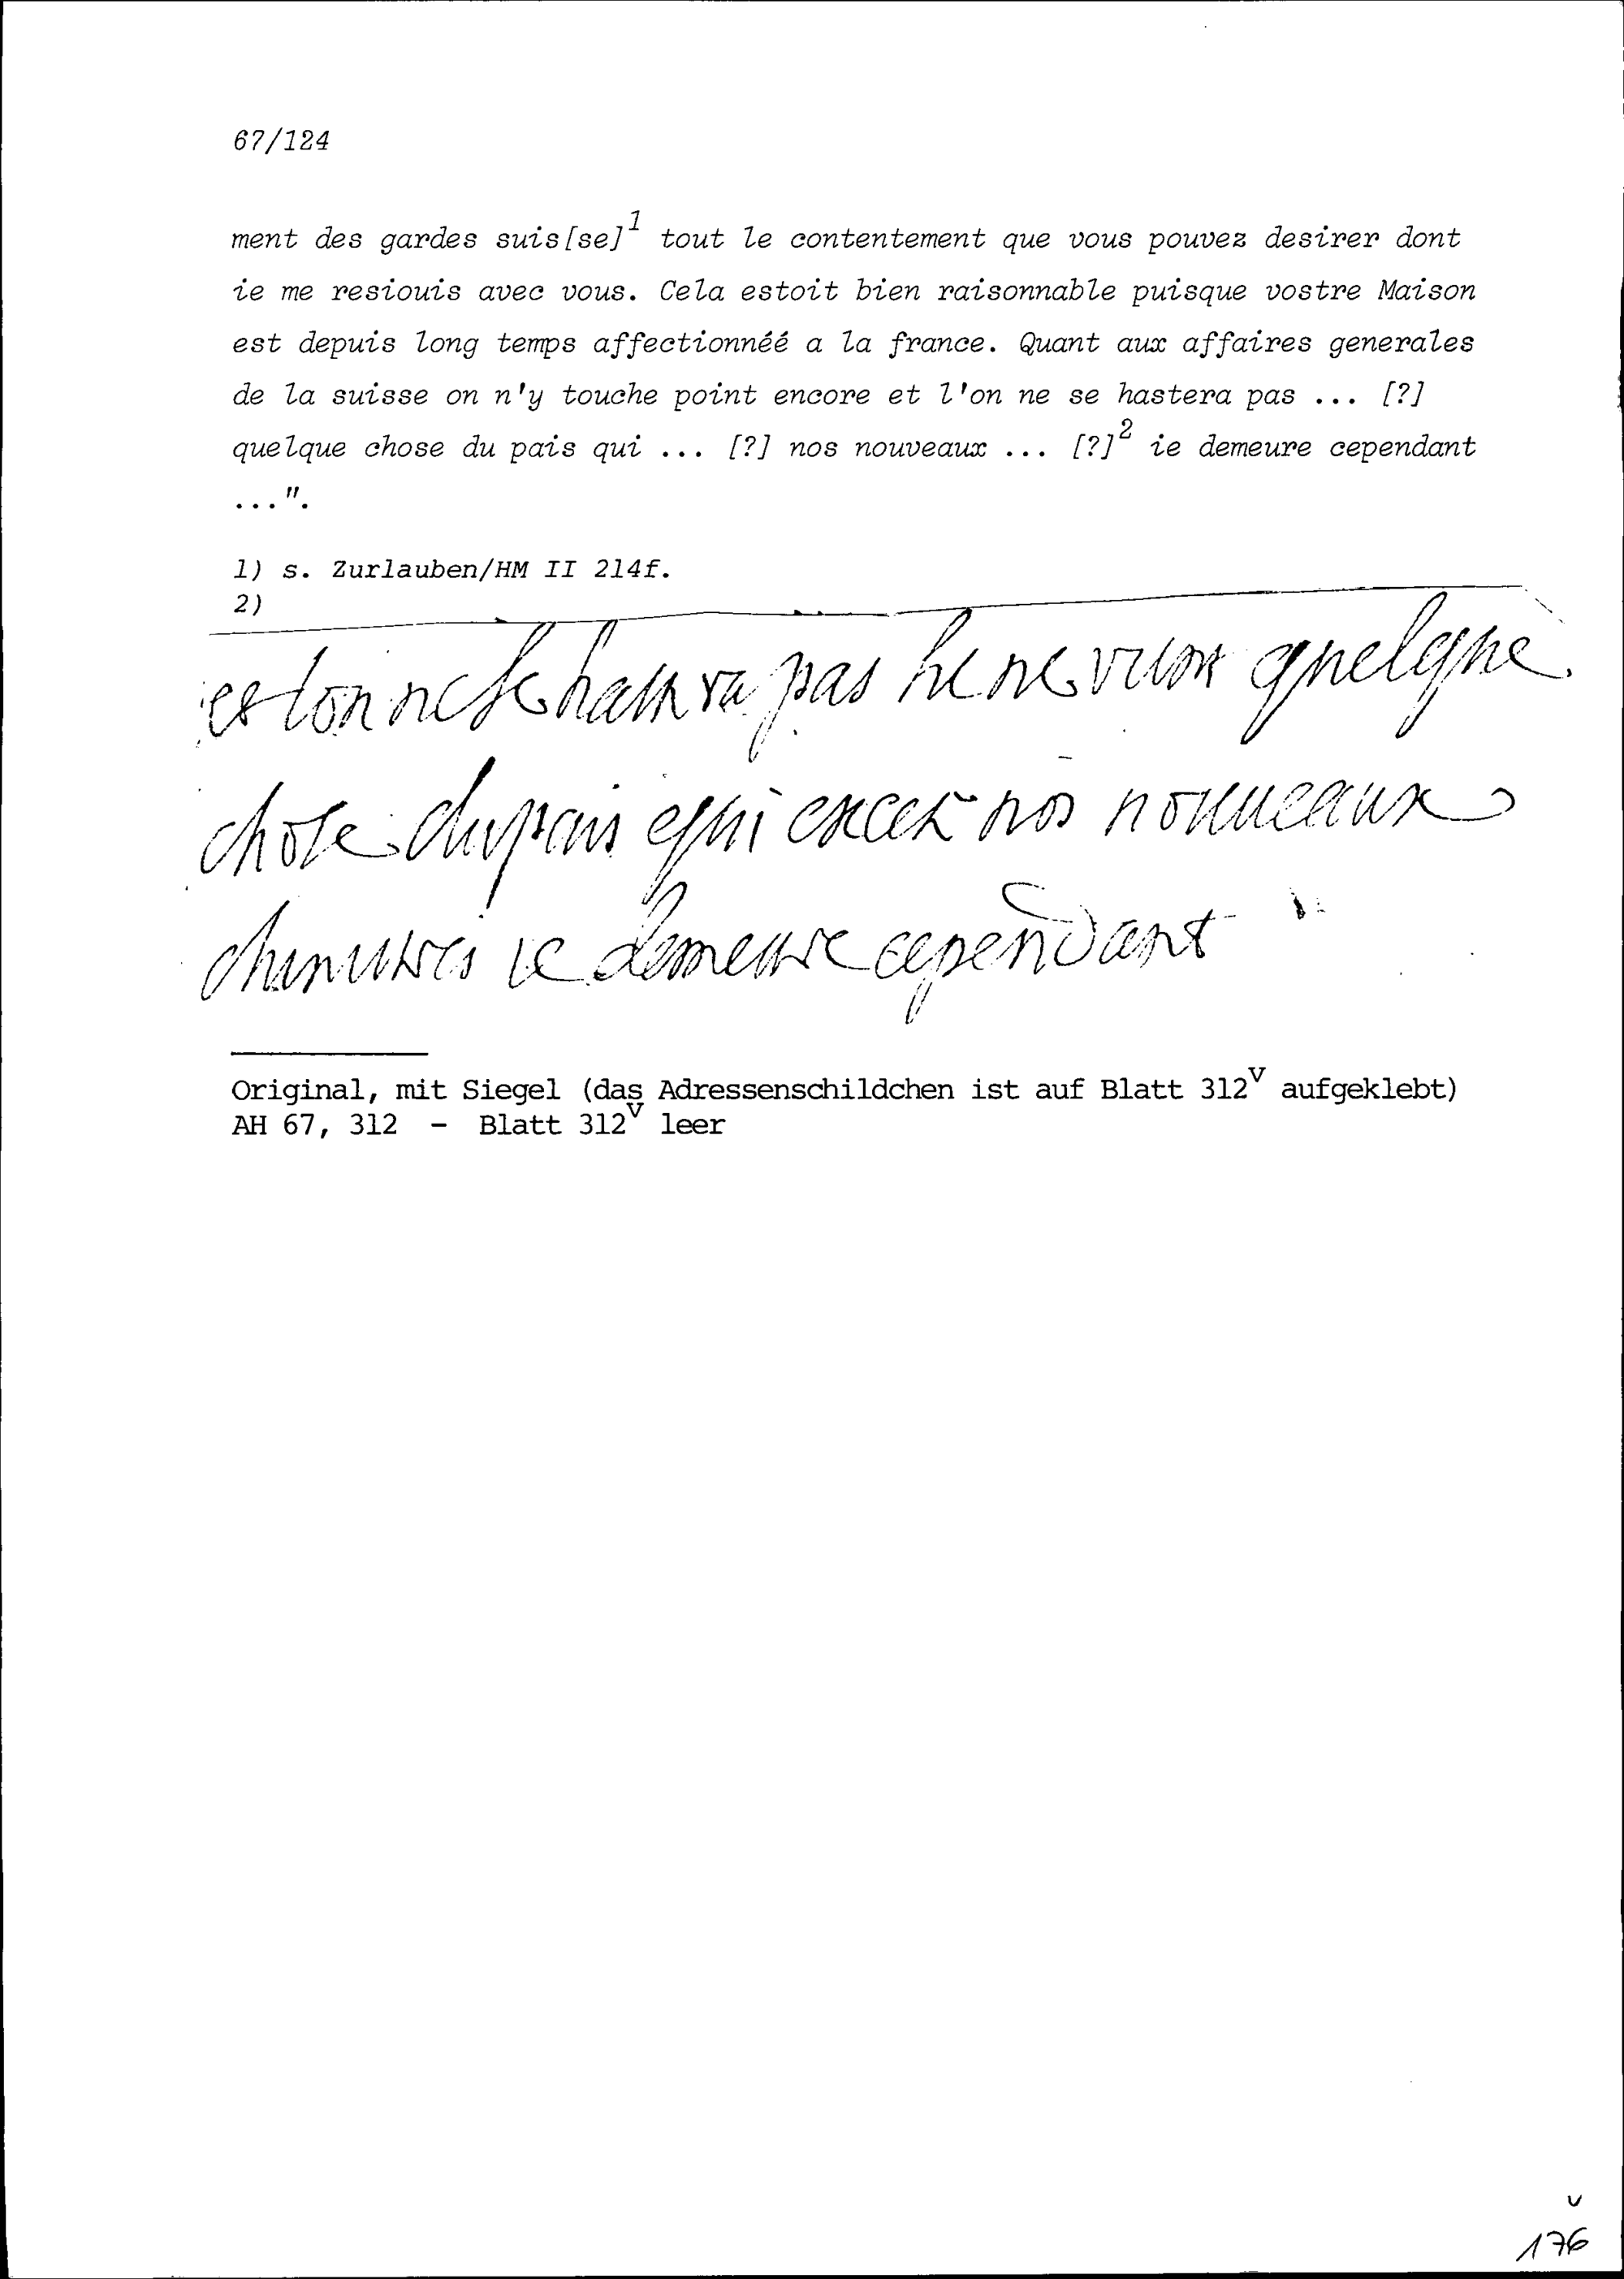 67/124
ment des gardes suis[se]¹ tout le contentement que vous pouvez desirer dont
ie me resiouis avec vous. Cela estoit bien raisonnable puisque vostre Maison
est depuis long temps affectionnéé a la france. Quant aux affaires generales
de la suisse on n'y touche point encore et l'on ne se hastera pas ... [?]
quelque chose du pais qui ... [?] nos nouveaux ... [?]² ie demeure cependant
...".
1) s. Zurlauben/HM II 214f.
2)
et lon ne se hastera pas ne quelque
chose du pais qui nos nouueaux
ie demeure cependant
Original, mit Siegel (das Adressenschildchen ist auf Blatt 312ᵛ aufgeklebt)
AH 67, 312 - Blatt 312ᵛ leer
176